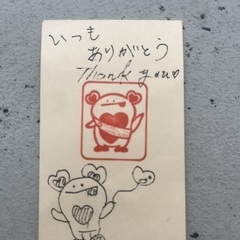 いつも
ありがとう
Thank you♡